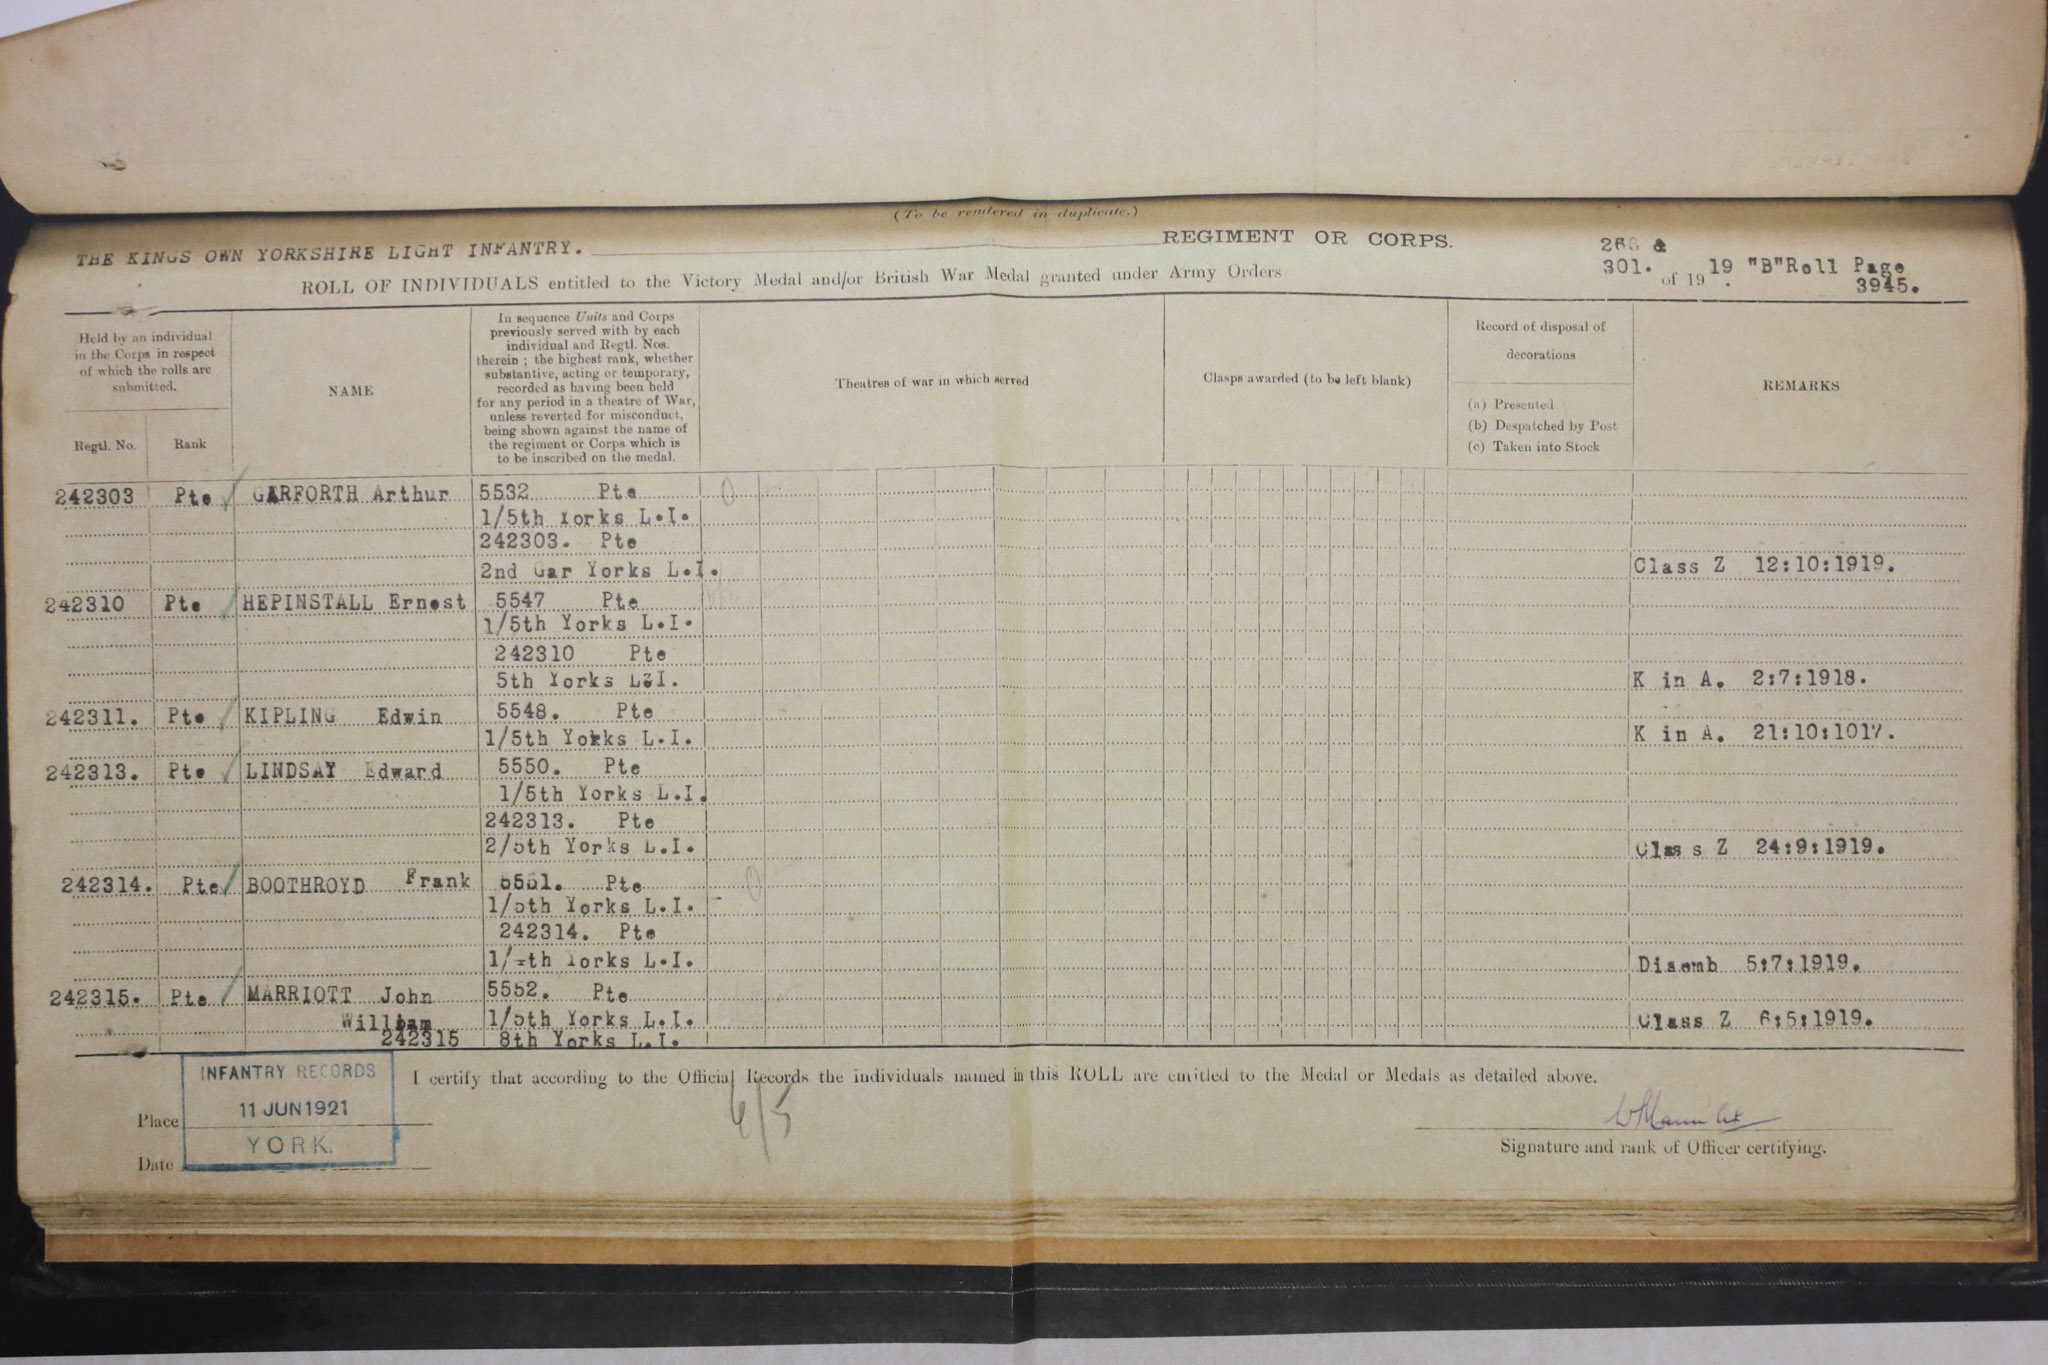 (To be rendered in duplicate.)
THE KINGS OWN YORKSHIRE LIGHT INFANTRY. REGIMENT OR CORPS. 266 &
301. of 19 19 . "B"Roll Page
3945.
ROLL OF INDIVIDUALS entitled to the Victory Medal and/or British War Medal granted under Army Orders
Held by an individual
in the Corps in respect
of which the rolls are
submitted.
Regtl. No. Rank
NAME
In sequence Units and Corps
previously served with by each
individual and Regtl. Nos.
therein ; the highest rank, whether
substantive, acting or temporary,
recorded as having been held
for any period in a theatre of War,
unless reverted for misconduct,
being shown against the name of
the regiment or Corps which is
to be inscribed on the medal.
Theatres of war in which served
Clasps awarded (to be left blank)
Record of disposal of
decorations
(a) Presented
(b) Despatched by Post
(c) Taken into Stock
REMARKS
242303 Pte GARFORTH Arthur 5532 Pte
1/5th Yorks L.I.
242303. Pte
2nd Gar Yorks L.I. Class Z 12:10:1919.
242310 Pte HEPINSTALL Ernest 5547 Pte
1/5th Yorks L.I.
242310 Pte
5th Yorks L.I. K in A. 2:7:1918.
242311. Pte KIPLING Edwin 5548. Pte
1/5th Yorks L.I. K in A. 21:10:1017.
242313. Pte LINDSAY Edward 5550. Pte
1/5th Yorks L.I.
242313. Pte
2/5th Yorks L.I. Class Z 24:9:1919.
242314. Pte BOOTHROYD Frank 5551. Pte
1/5th Yorks L.I.
242314. Pte
Yorks L.I. Disemb 5:7:1919.
242315. Pte MARRIOTT John 5552. Pte
William 1/5th Yorks L.I. Class Z 6:5:1919.
242315 8th Yorks L.I.
I certify that according to the Official Records the individuals named in this ROLL are entitled to the Medal or Medals as detailed above.
INFANTRY RECORDS
11 JUN 1921
YORK.
Place
Date
Signature and rank of Officer certifying.